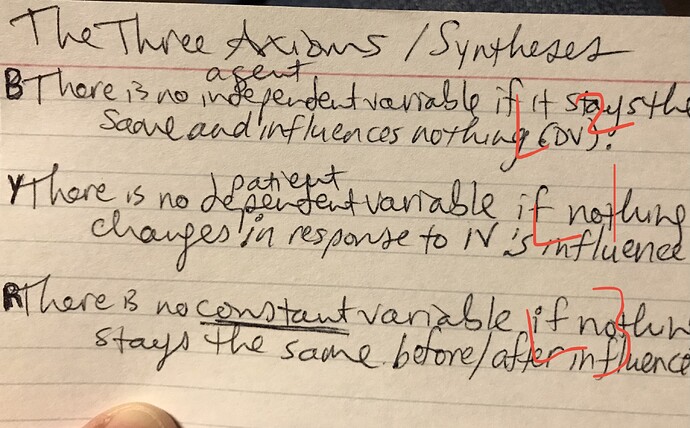 The Three Axioms / Syntheses
agent
B There is no independent variable if it stays the
same and influences nothing (DV).
L2
patient
Y There is no dependent variable if nothing
changes in response to IV's influence
L1
R There is no constant variable if nothin
stays the same before/after influence
L3